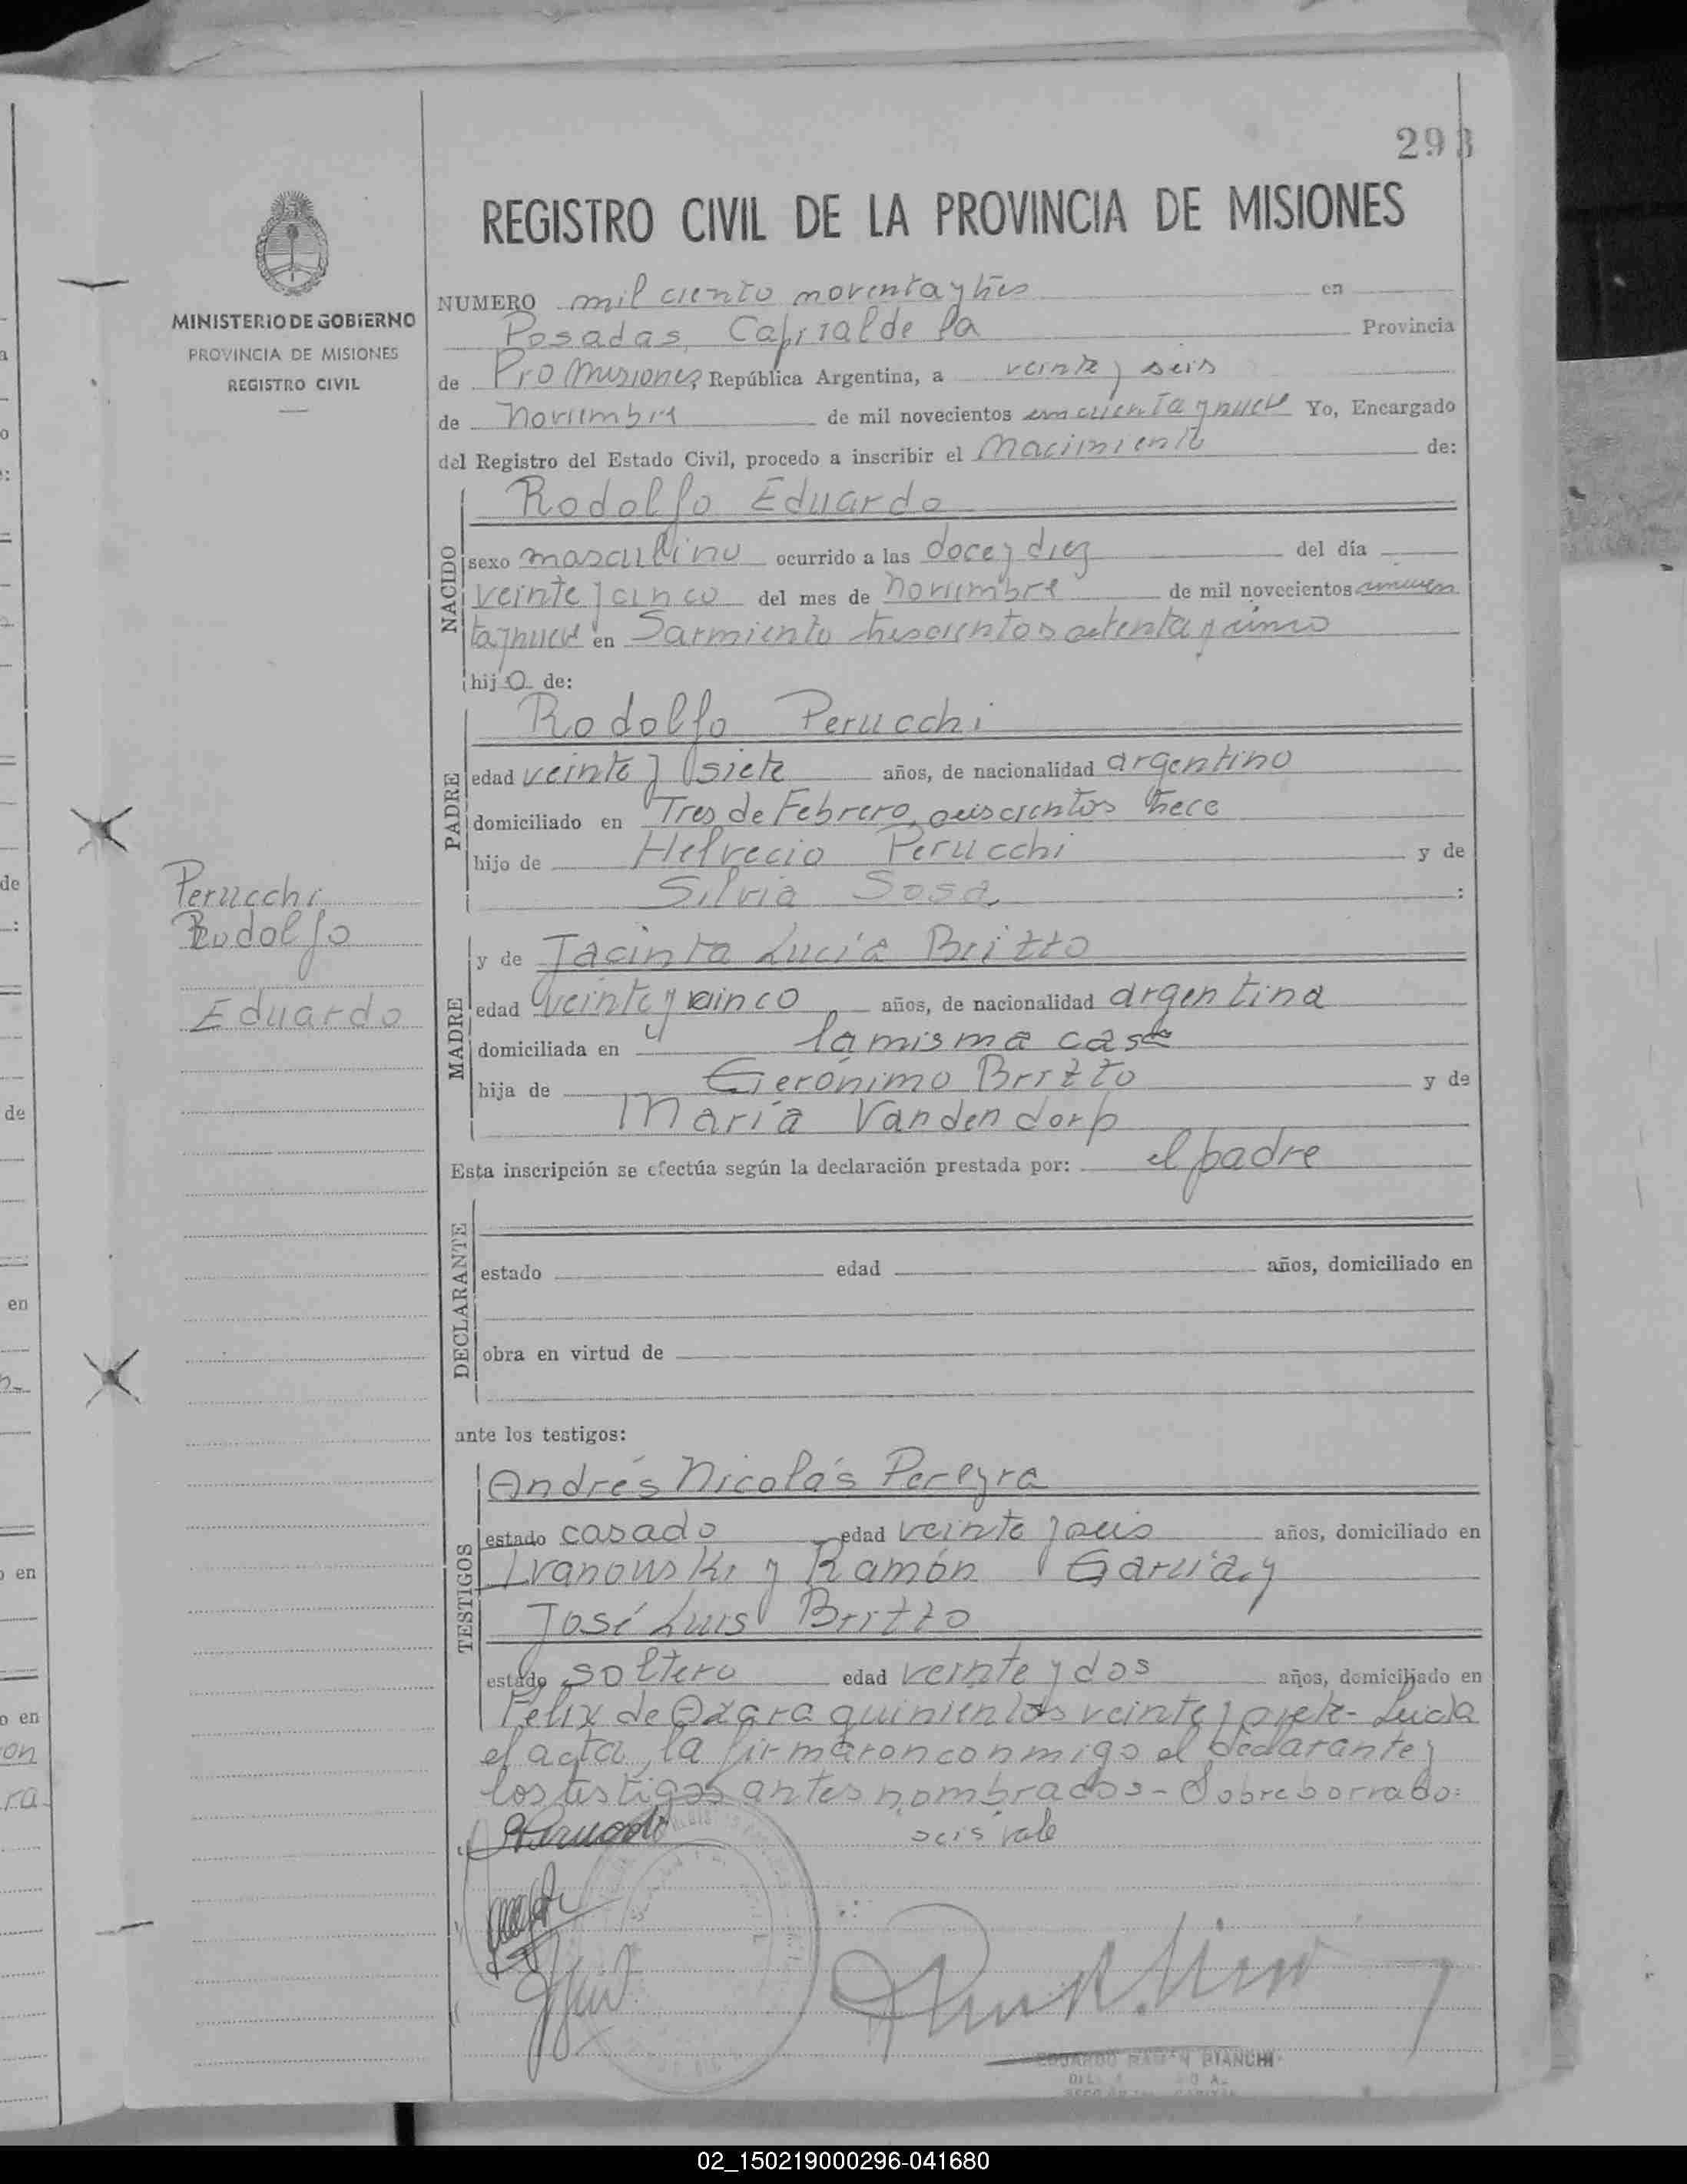 293
REGISTRO CIVIL DE LA PROVINCIA DE MISIONES
MINISTERIO DE GOBIERNO
PROVINCIA DE MISIONES
REGISTRO CIVIL
NUMERO mil ciento noventa y tres en
Posadas, Capital de la Provincia
de Misiones, República Argentina, a veinte y seis
de noviembre de mil novecientos cincuenta y nueve Yo, Encargado
del Registro del Estado Civil, procedo a inscribir el nacimiento de:
NACIDO
Rodolfo Eduardo
sexo masculino ocurrido a las doce y diez del día
veinte y cinco del mes de noviembre de mil novecientos cincuen
ta y nueve en Sarmiento trescientos setenta y cinco
hijo de:
PADRE
Rodolfo Perucchi
edad veinte y siete años, de nacionalidad argentino
domiciliado en Tres de Febrero, seiscientos trece
hijo de Helvecio Perucchi y de
Silvia Sosa :
Perucchi
Rodolfo
Eduardo
MADRE
y de Jacinta Lucía Britto
edad veinte y cinco años, de nacionalidad argentina
domiciliada en la misma casa
hija de Gerónimo Britto y de
María Vandendorp
Esta inscripción se efectúa según la declaración prestada por: el padre
DECLARANTE
estado edad años, domiciliado en
obra en virtud de
ante los testigos:
TESTIGOS
Andrés Nicolás Pereyra
estado casado edad veinte y seis años, domiciliado en
Ivanowski y Ramón García, y
José Luis Britto
estado soltero edad veinte y dos años, domiciliado en
Felix de Azara quinientos veinte y siete - Leída
el acta, la firmaron conmigo el declarante y
los testigos antes nombrados - Sobre borrado:
seis vale
EDUARDO RAMON BIANCHI
02_150219000296-041680